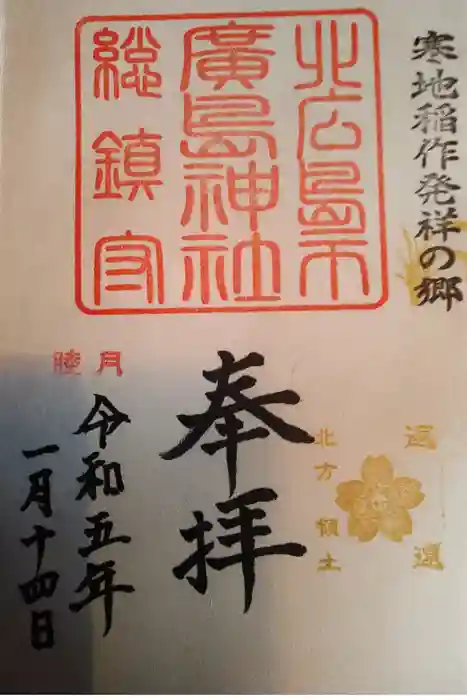 寒地稲作発祥の郷
北広島市
廣島神社
総鎮守
奉拝
北方領土
返還
睦月
令和五年
一月十四日